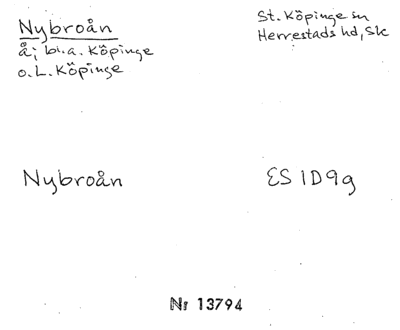 Nybroån
å; bl.a. Köpinge
o. L. Köpinge
St. Köpinge sn
Herrestads hd, Sk
Nybroån
ES 1D9g
Nr 13794